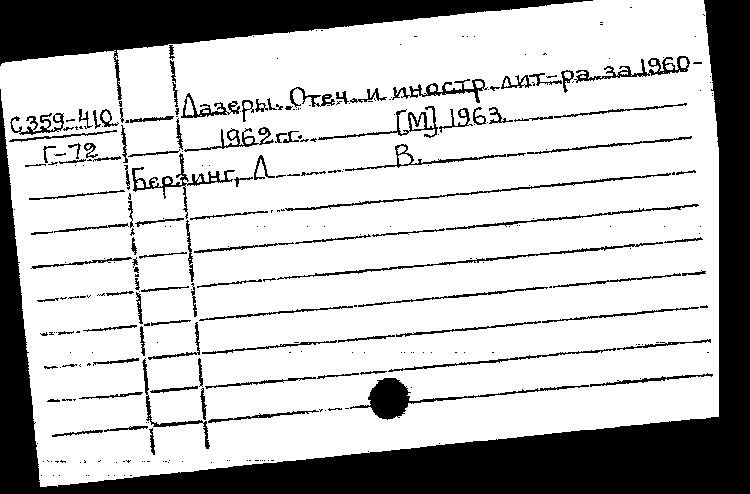 Лазеры. Отеч. и иностр. лит-ра за 1960-
С359-410 1962 гг. [М], 1963.
Г-72
Берзинг, Л В.